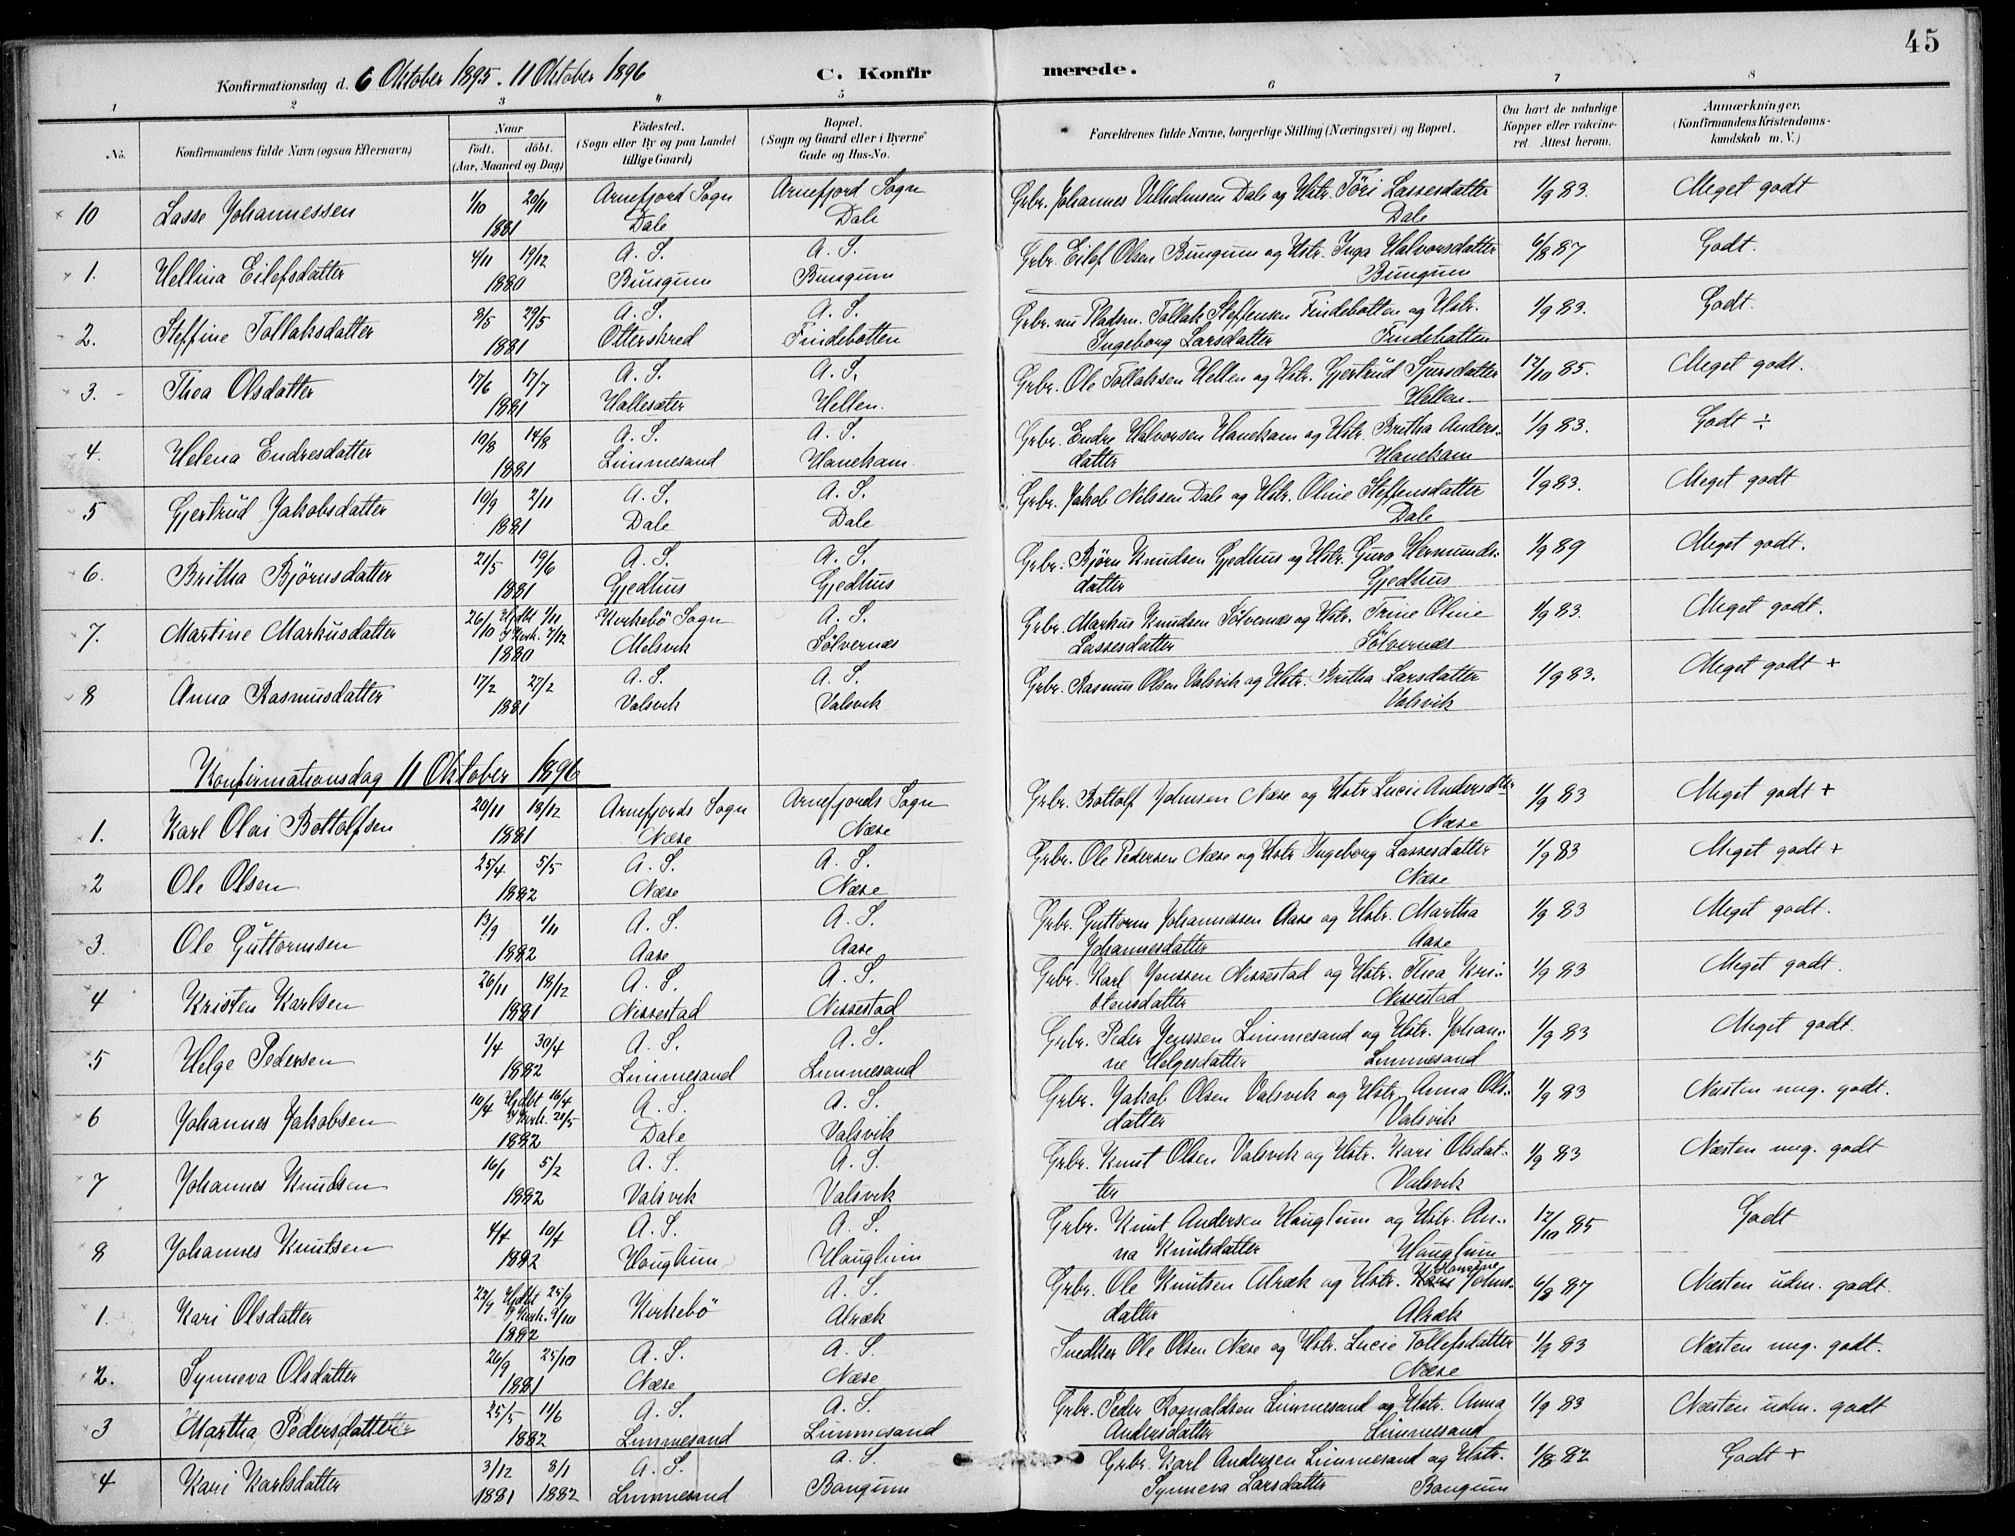 45
Konfirmationsdag d. 6 Oktober 1895 - 11 Oktober 1896 C. Konfir merede.
1 2 3 4 5 6 7 8
No. Konfirmandens fulde Navn (ogsaa Efternavn) Naar Födt. döbt. (Aar, Maaned og Dag) Födested. (Sogn eller By og paa Landet tillige Gaard) Bopæl. (Sogn og Gaard eller i Byerne Gade og Hus-No. Forældrenes fulde Navne, borgerlige Stilling (Næringsvei) og Bopæl. Om havt de naturlige Kopper eller vakcineret. Attest herom. Anmærkninger. (Konfirmandens Kristendomskundskab m. V.)
10 Lasse Johannessen 1/10 20/11 1881 Arnefjord Sogn Dale Arnefjord Sogn Dale Grbr. Johannes Vilhelmsen Dale og Hstr. Töri Lassesdatter Dale 1/9 83. Meget godt
1. Hellina Eilefsdatter 4/11 19/12 1880 A. S. Bungum A. S. Bungum Grbr. Eilef Olsen Bungum og Hstr. Inga Halvorsdatter Bungum 6/8 87 Godt.
2. Steffine Tollaksdatter 8/5 29/5 1881 A. S. Otterskred A. S. Findebotten Grbr. nu Pladsm. Tollak Steffensen Findebotten og Hstr. Ingeborg Larsdatter Findebotten 1/9 83. Godt.
3. Thea Olsdatter 17/6 17/7 1881 A. S. Hallesæter A. S. Hellen. Grbr. Ole Tollaksen Hellen og Hstr. Gjertrud Sjursdatter Hellen 12/10 85. Meget godt.
4. Helena Endresdatter 10/8 14/8 1881 A. S. Limmesand A. S. Hanekam. Grbr. Endre Halvorsen Hanekam og Hstr. Britha Andersdatter Hanekam 1/9 83. Godt ÷
5 Gjertrud Jakobsdatter 19/9 2/11 1881 A. S. Dale A. S. Dale Grbr. Jakob Nilssen Dale og Hstr. Oline Steffensdatter Dale 1/9 83. Meget godt
6. Britha Björnsdatter 21/5 19/6 1881 A. S. Gjedhus A. S. Gjedhus Grbr. Björn Knudsen Gjedhus og Hstr. Guro Hermundsdatter Gjedhus 1/9 89 Meget godt.
7. Martine Markusdatter 26/10 Hjdbt 1/11 i Kirk. 2/12 1880 Kirkebö Sogn Melsvik A. S. Sölvernæs Grbr. Markus Knudsen Sölvernæs og Hstr. Trine Oline Lassesdatter Sölvernæs 1/9 83. Meget godt.
8 Anna Rasmusdatter 17/2 27/2 1881 A. S. Valsvik A. S. Valsvik Grbr. Rasmus Olsen Valsvik og Hstr. Britha Larsdatter Valsvik 1/9 83. Meget godt +
Konfirmationsdag 11 Oktober 1896
1. Karl Olai Bottolfsen 20/11 18/12 1881 Arnefjords Sogn Næse Arnefjords Sogn Næse Grbr. Bottolf Johnsen Næse og Hstr Lucie Andersdtr Næse 1/9 83 Meget godt +
2 Ole Olsen 25/4 5/5 1882 A. S. Næse A. S. Næse Grbr. Ole Pedersen Næse og Hstr Ingeborg Lassesdatter Næse 1/9 83 Meget godt +
3. Ole Guttormsen 13/9 1/11 1882 A. S. Aase A. S. Aase Grbr. Guttorm Johannessen Aase og Hstr. Martha Johannesdatter Aase 1/9 83 Meget godt.
4 Kristen Karlsen 26/11 18/12 1881 A. S. Nissestad A. S. Nissestad Grbr. Karl Jenssen Nissestad og Hstr. Thea Kristensdatter Nissestad 1/9 83 Meget godt.
5 Helge Pedersen 1/4 30/4 1882 A. S. Limmesand A. S. Limmesand Grbr. Peder Jenssen Limmesand og Hstr. Johanne Helgesdatter Limmesand 1/9 83 Meget godt.
6 Johannes Jakobsen 10/4 Hjdbt 16/4 i Kirk. 28/5 1882 A. S. Dale A. S. Valsvik Grbr. Jakob Olsen Valsvik og Hstr. Anna Olsdatter Valsvik 1/9 83 Næsten mg. godt.
7 Johannes Knudsen 16/1 5/2 1882 A. S. Valsvik A. S. Valsvik Grbr. Knut Olsen Valsvik og Hstr. Kari Olsdatter Valsvik 1/9 83 Næsten mg. godt
8 Johannes Knutsen 4/4 10/4 1882 A. S. Hauglum A. S. Hauglum Grbr. Knut Andersen Hauglum og Hstr. Anna Knutsdatter Hauglum 12/10 85 Godt
1. Kari Olsdatter 22/9 Hjdbt 25/9 i Kirk. 9/10 1882 Kirkebö A. S. Alræk Grbr. Ole Knutsen Alræk og Hstr. Johnsdatter Alræk 6/8 87 Næsten udm. godt.
2. Synneva Olsdatter 26/9 25/10 1881 A. S. Næse A. S. Næse Snedker Ole Olsen Næse og Hstr. Lucie Tollefsdatter Næse 1/9 83 Næsten mg. godt.
3 Martha Pedersdatter 25/5 11/6 1882 A. S. Limmesand A. S. Limmesand Grbr. Peder Rognaldsen Limmesand og Hstr. Anna Andersdatter Limmesand 1/9 83 Næsten udm. godt
4 Kari Karlsdatter 3/12 1881 8/1 1882 A. S. Limmesand A. S. Bangum Grbr. Karl Andersen Limmesand og Hstr. Synneva Larsdatter Bangum 1/8 82 Godt +